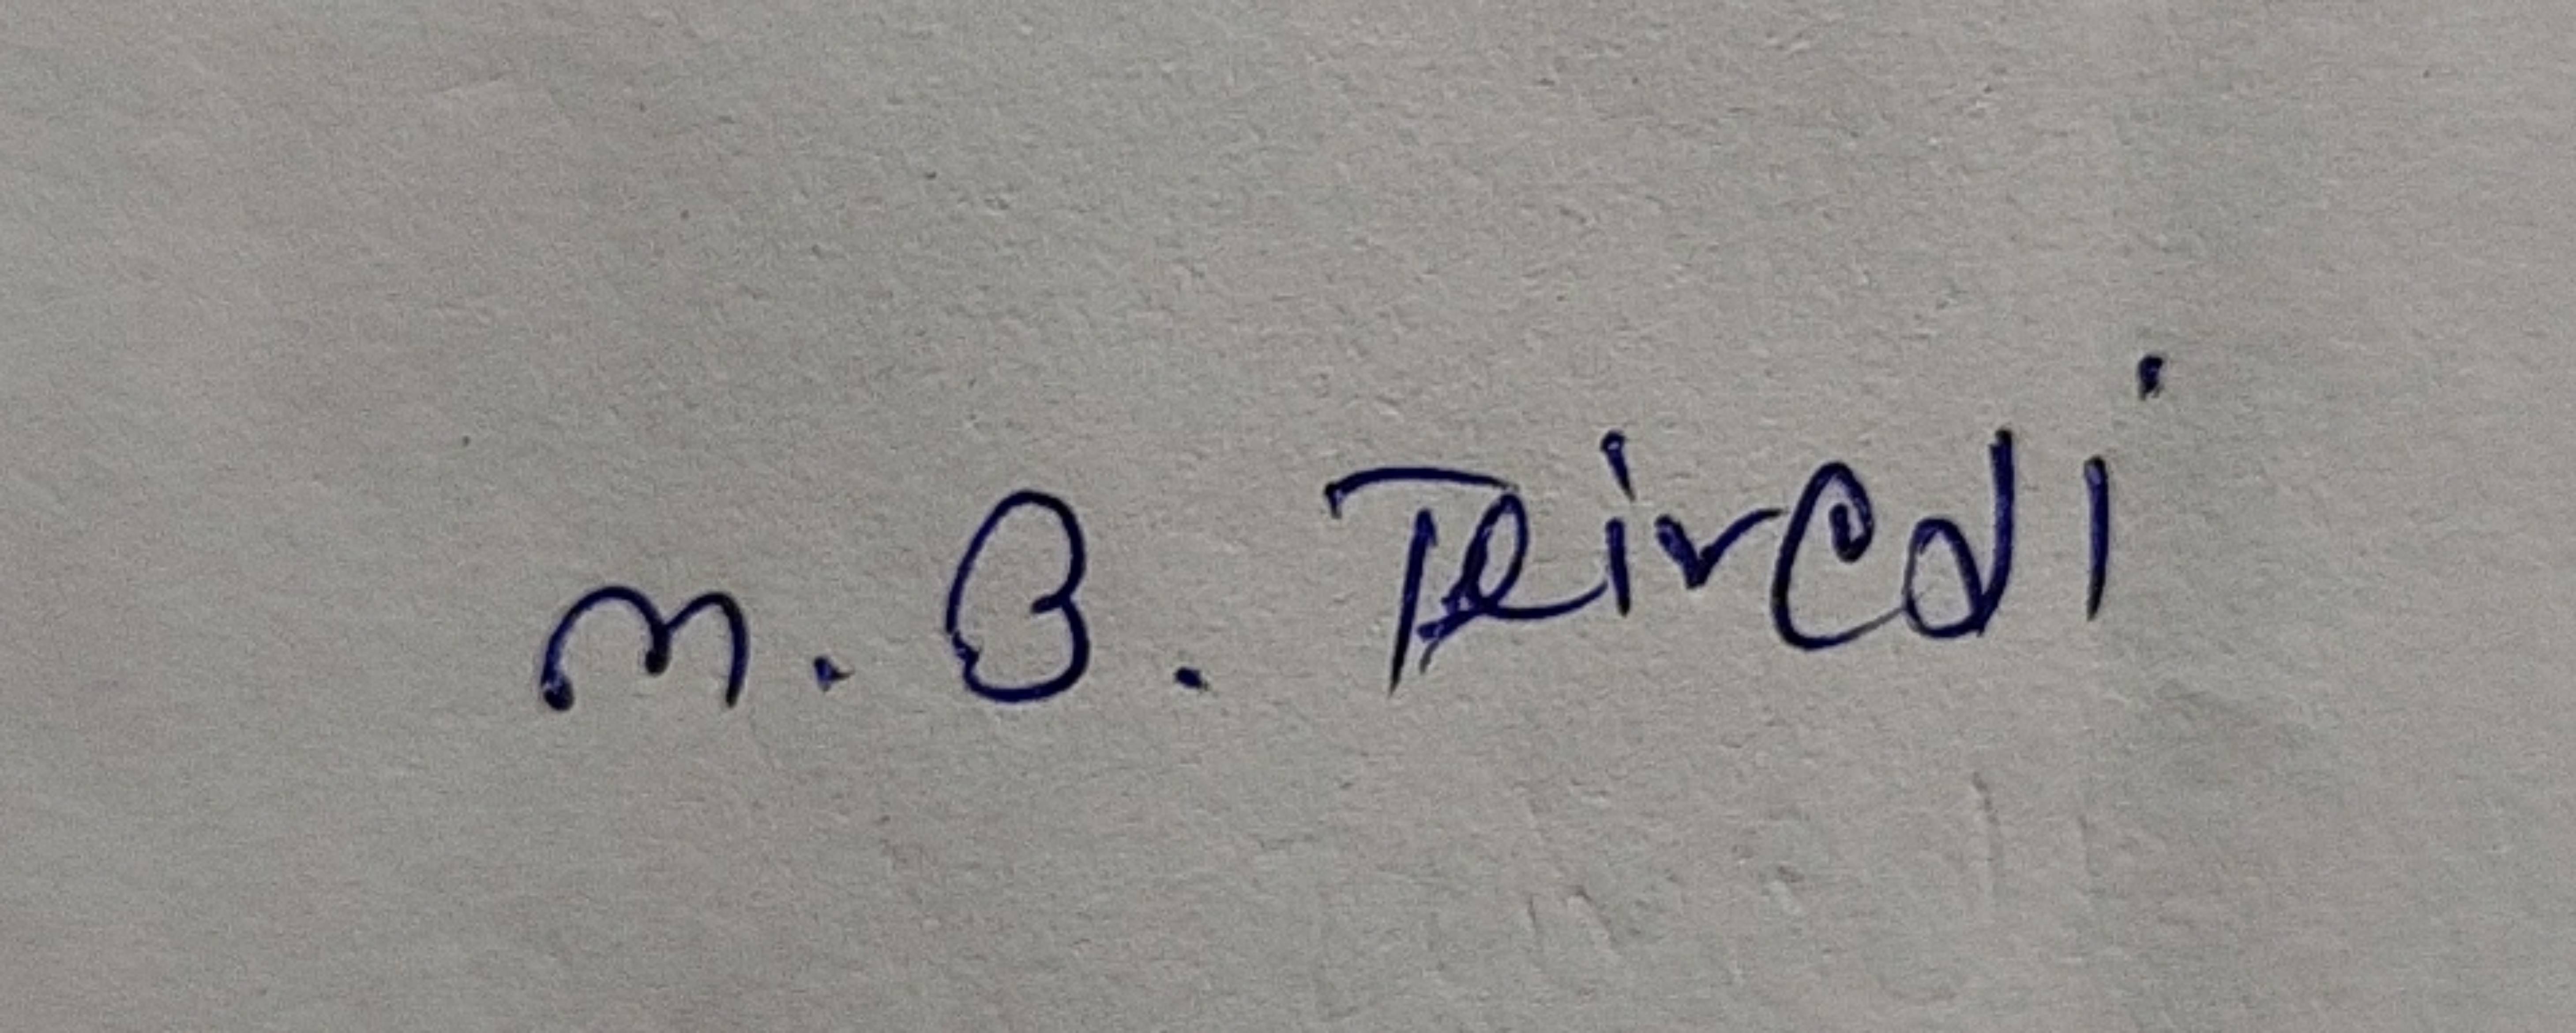 M. B. Trivedi